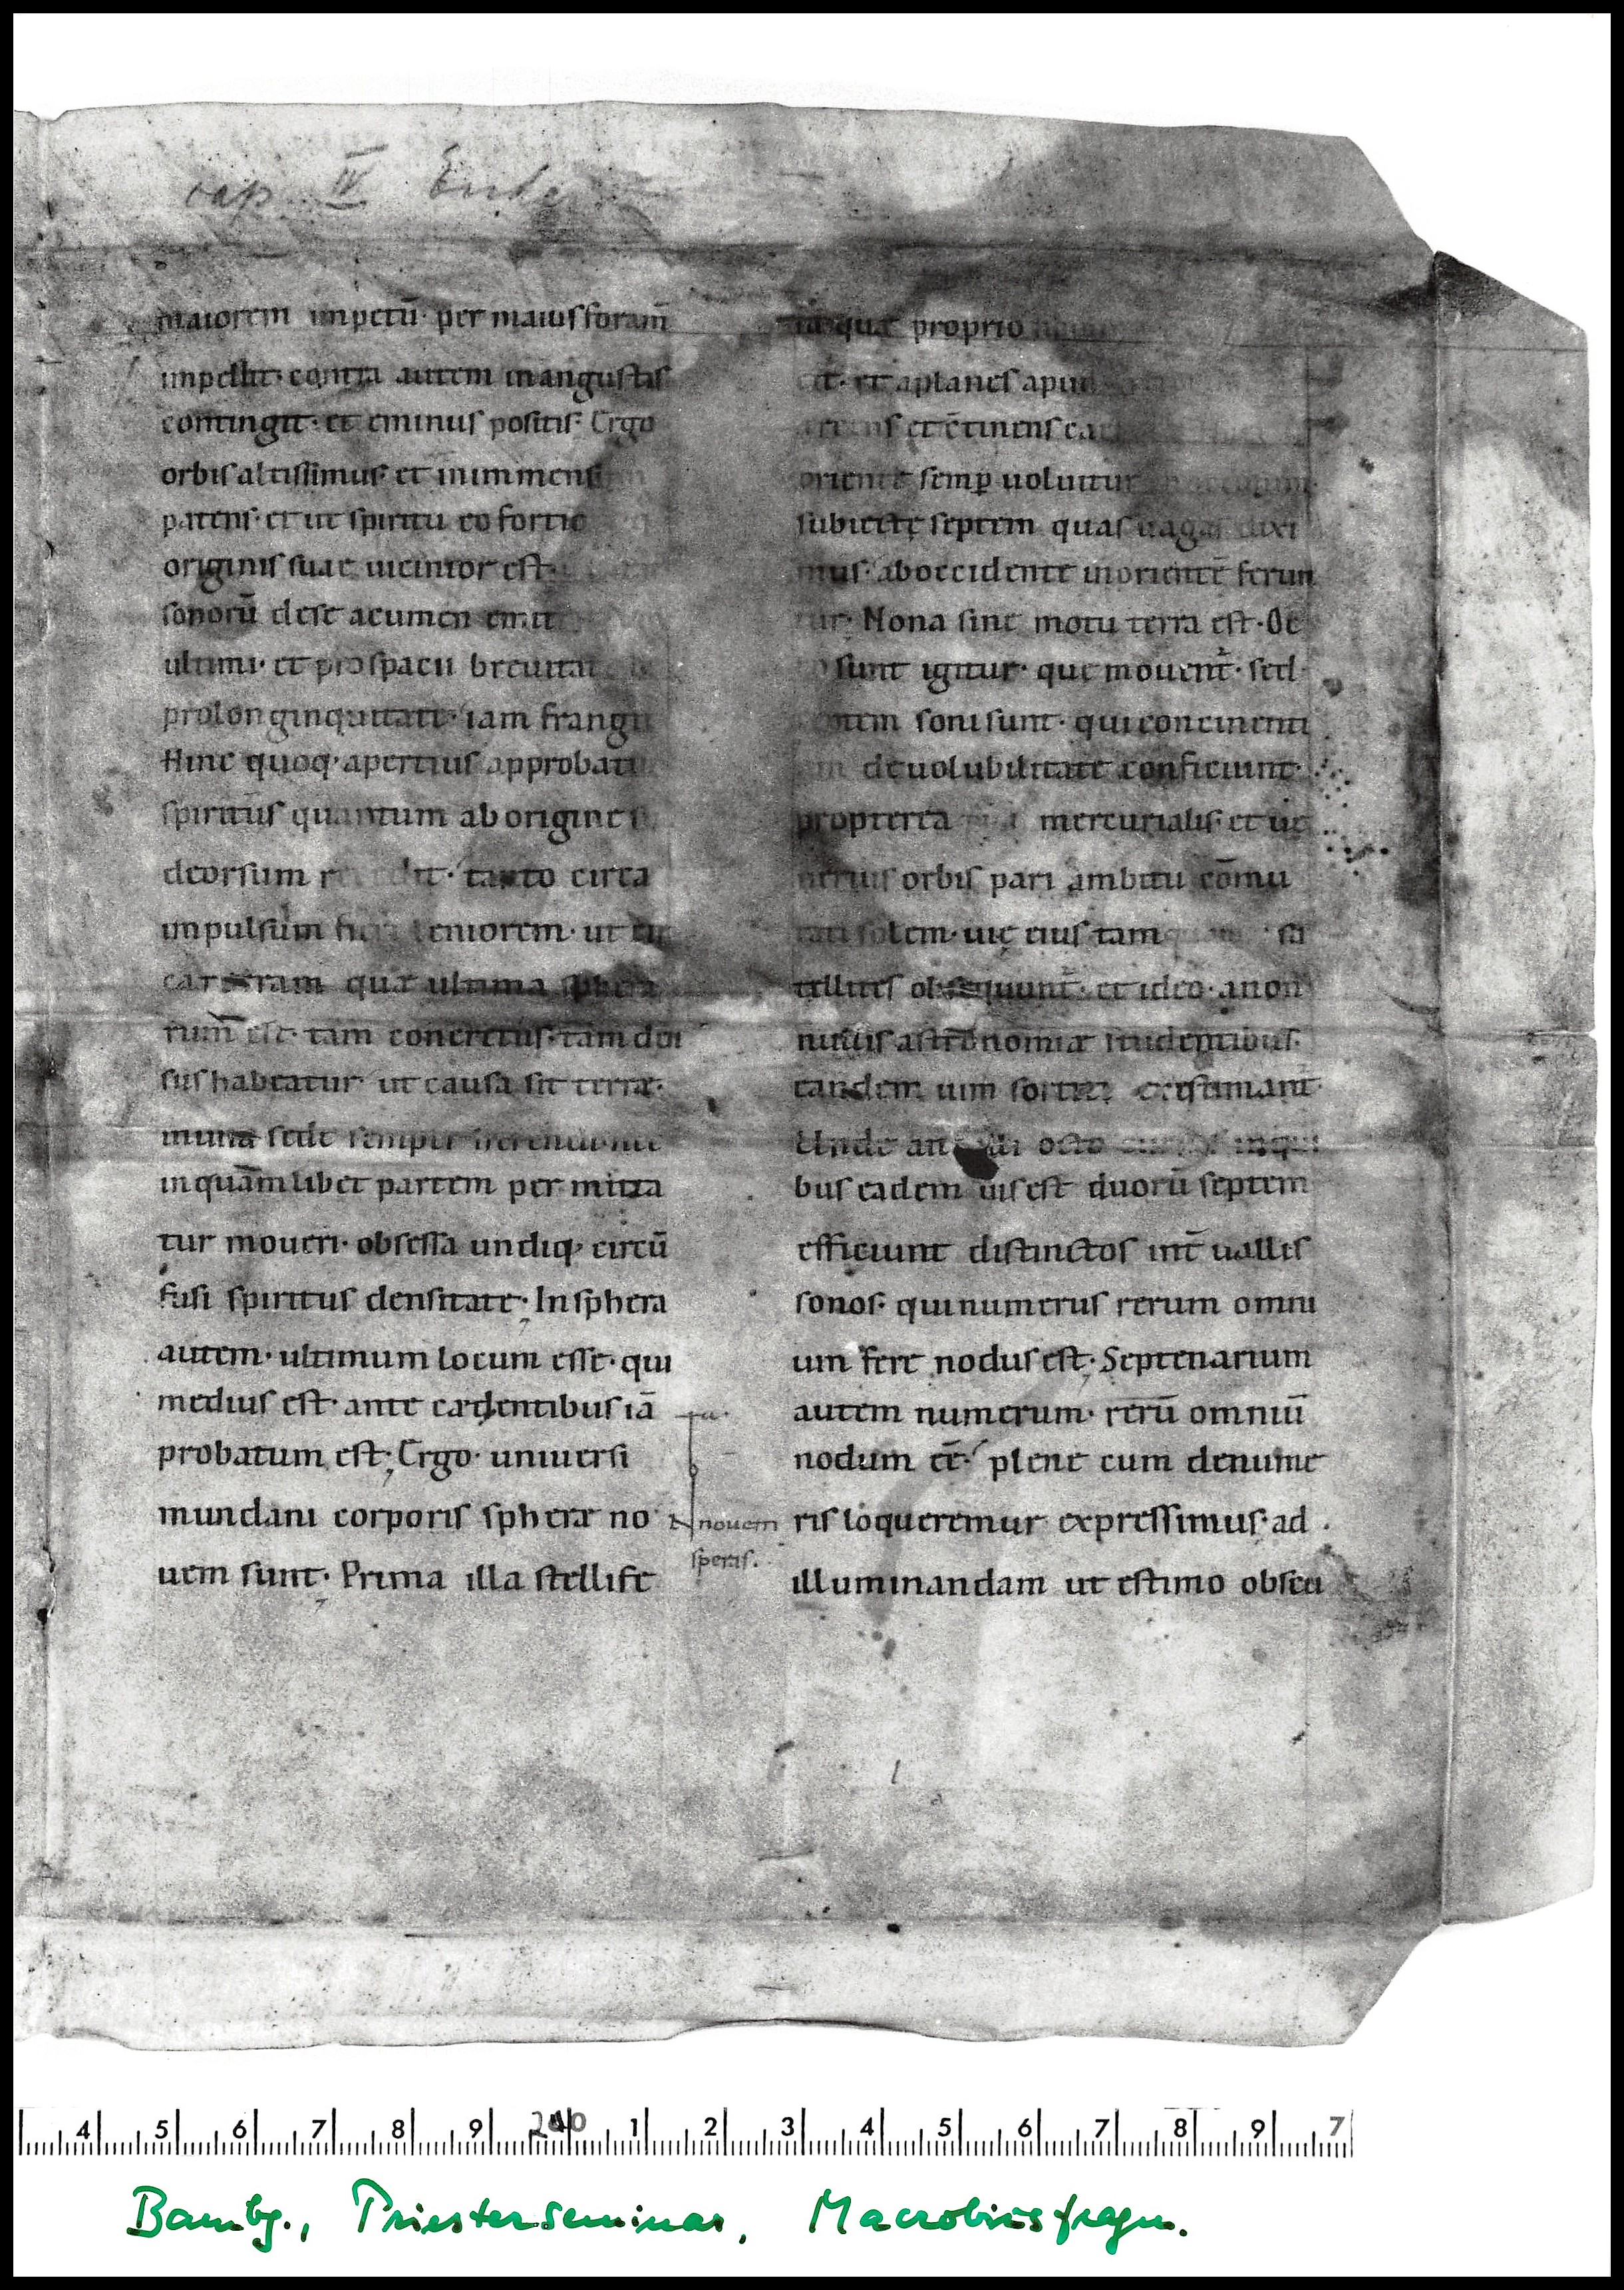 cap. IV Ende
maiorem impetū· per maius foram̄
impellit· contra autem in angustis
contingit· et eminus positis· Ergo
orbis altissimus· et inimmens
patens· et ut spiritu eo fortio
originis suae uicinior est·
sonorū de se acumen emit
ultimi· et pro spacii breuitat
prolonginquitate· iam frangit
Hinc quoq· apertius approbat
spiritus quantum ab origine
deorsum tanto circa
impulsum leniorem· ut
quæ ultima sphera
rum̄ est· tam concretus· tam den
sus habeatur· ut causa sit terræ·
in una sede semper
in quam̄libet partem permitta
tur moueri· obsessa undiq· circū
fusi spiritus densitate· In sphera
autem· ultimum locum esse· qui
medius est· ante cadentibus iā
probatum est· Ergo· uniuersi
mundani corporis spheræ no
uem sunt· Prima illa stellife
nouem
speris.
quæ proprio
et aplanes apud
et c̄tinens
oriente semꝑ uoluitur
subiectę septem quas uagas dixi
mus· ab occidente in orientē ferun
tur· Nona sine motu terra est· Oc
sunt igitur· que mouent̄· sed
soni sunt· qui concinenti
de uolubilitate conficiunt·
propterea mercurialis· et ue
nerius orbis pari ambitu cōmu
solem· uię eius tam sa
tellites obsequunt̄· et ideo· a non
nullis astronomiæ studentibus·
eandem uim sortiri existimant̄·
Unde octo
bus eadem uis est duorū septem
efficiunt distinctos int̄uallis
sonos· qui numerus rerum omni
um fere nodus est· Septenarium
autem numerum· rerū omniū
nodum eē· plene cum denume
ris loqueremur expressimus· ad
illuminandam ut estimo obscu
4 5 6 7 8 9 240 1 2 3 4 5 6 7 8 9 7
Bambg., Priesterseminar, Macrobiusfragm.